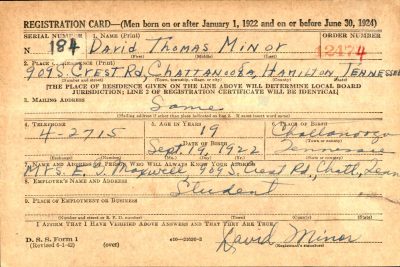 REGISTRATION CARD—(Men born on or after January 1, 1922 and on or before June 30, 1924)
SERIAL NUMBER 1. NAME (Print) ORDER NUMBER
184 David Thomas Minor 12474
2. PLACE OF RESIDENCE (Print)
909 S. Crest Rd, Chattanooga, Hamilton Tennessee
[THE PLACE OF RESIDENCE GIVEN ON THE LINE ABOVE WILL DETERMINE LOCAL BOARD
JURISDICTION; LINE 2 OF REGISTRATION CERTIFICATE WILL BE IDENTICAL]
3. MAILING ADDRESS
Same
[Mailing address if other than place indicated on line 2. If same insert word same]
4. TELEPHONE 5. AGE IN YEARS 6. PLACE OF BIRTH
4-2715 19 Chattanooga
DATE OF BIRTH (Town or county)
Sept. 19, 1922 Tennessee
(Exchange) (Number) (Mo.) (Day) (Yr.) (State or country)
7. NAME AND ADDRESS OF PERSON WHO WILL ALWAYS KNOW YOUR ADDRESS
Mrs. E. J. Maxwell 909 S. Crest Rd, Chatt, Tenn
8. EMPLOYER'S NAME AND ADDRESS
Student
9. PLACE OF EMPLOYMENT OR BUSINESS
(Number and street or R. F. D. number) (Town) (County) (State)
I AFFIRM THAT I HAVE VERIFIED ABOVE ANSWERS AND THAT THEY ARE TRUE.
D. S. S. Form 1
(over) David Minor
(Registrant's signature)